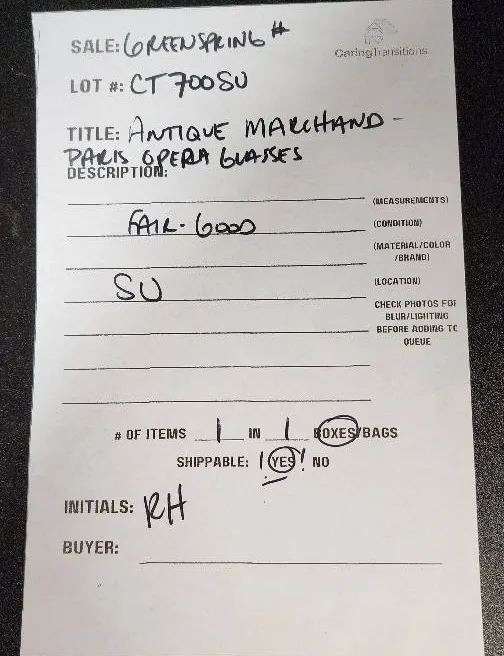 SALE: GREENSPRING #
CaringTransitions
LOT #: CT700SU
TITLE: ANTIQUE MARCHAND -
PARIS OPERA GLASSES
DESCRIPTION:
(MEASUREMENTS)
FAIR-GOOD (CONDITION)
(MATERIAL/COLOR
/BRAND)
SU (LOCATION)
CHECK PHOTOS FOR
BLUR/LIGHTING
BEFORE ADDING TO
QUEUE
# OF ITEMS 1 IN 1 BOXES/BAGS
SHIPPABLE: ! YES ! NO
INITIALS: RH
BUYER: